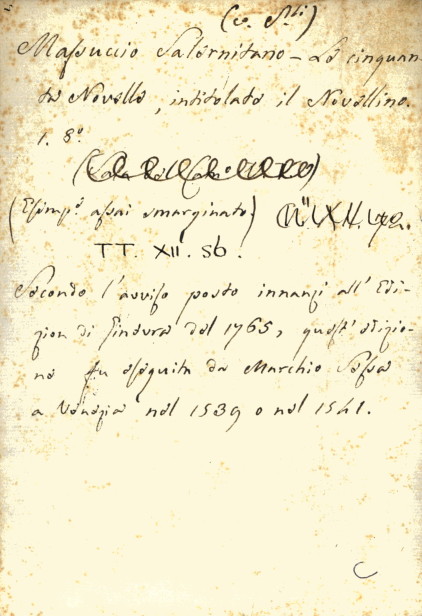 (c. S.ti)
Massuccio Salernitano - Le cinquan-
te Novelle, intitolate il Novellino.
1. 8.º
(Esemp.e assai smarginato)
TT. XII. 56.
Secondo l'avviso posto innanzi all'Edi-
zion di Ginevra del 1765, quest'edizio-
ne fu eseguita da Marchio Sessa
a Venezia nel 1539 o nel 1541.
C